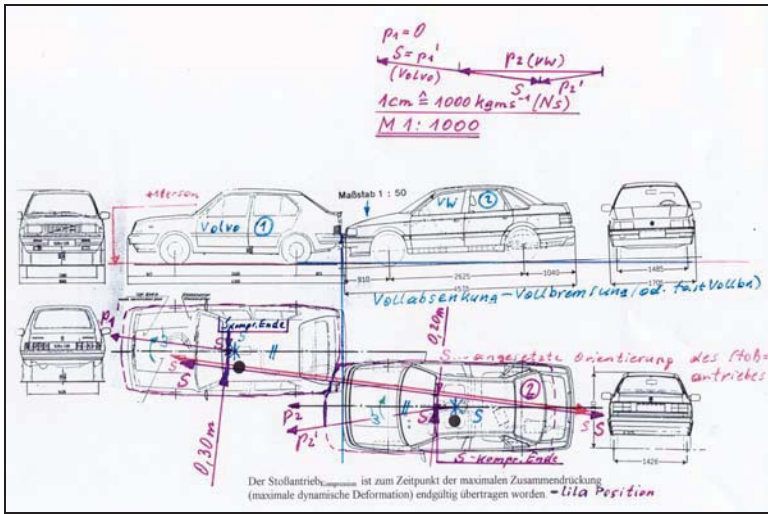 p₁ = 0
S = p₁'
(Volvo)
p₂ (VW)
S
p₂'
1cm ≙ 1000 kgms⁻¹ (Ns)
M 1 : 1000
Maßstab 1 : 50
Volvo ①
VW ②
810
2625
1040
4575
1485
Vollabsenkung – Vollbremsung (od. fast Vollbr.)
p₁'
S-kompr. Ende
S
0,20m
S.... angesetzte Orientierung des Stoß=
antriebes
S
S
②
p₂
p₂'
S
S
S
S
0,30m
S-kompr. Ende
1426
Der Stoßantrieb Kompression ist zum Zeitpunkt der maximalen Zusammendrückung
(maximale dynamische Deformation) endgültig übertragen worden. – lila Position